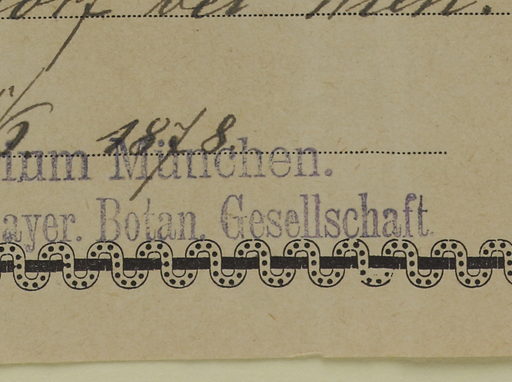 dorf bei Wien.
1878.
ium München.
ayer. Botan. Gesellschaft.